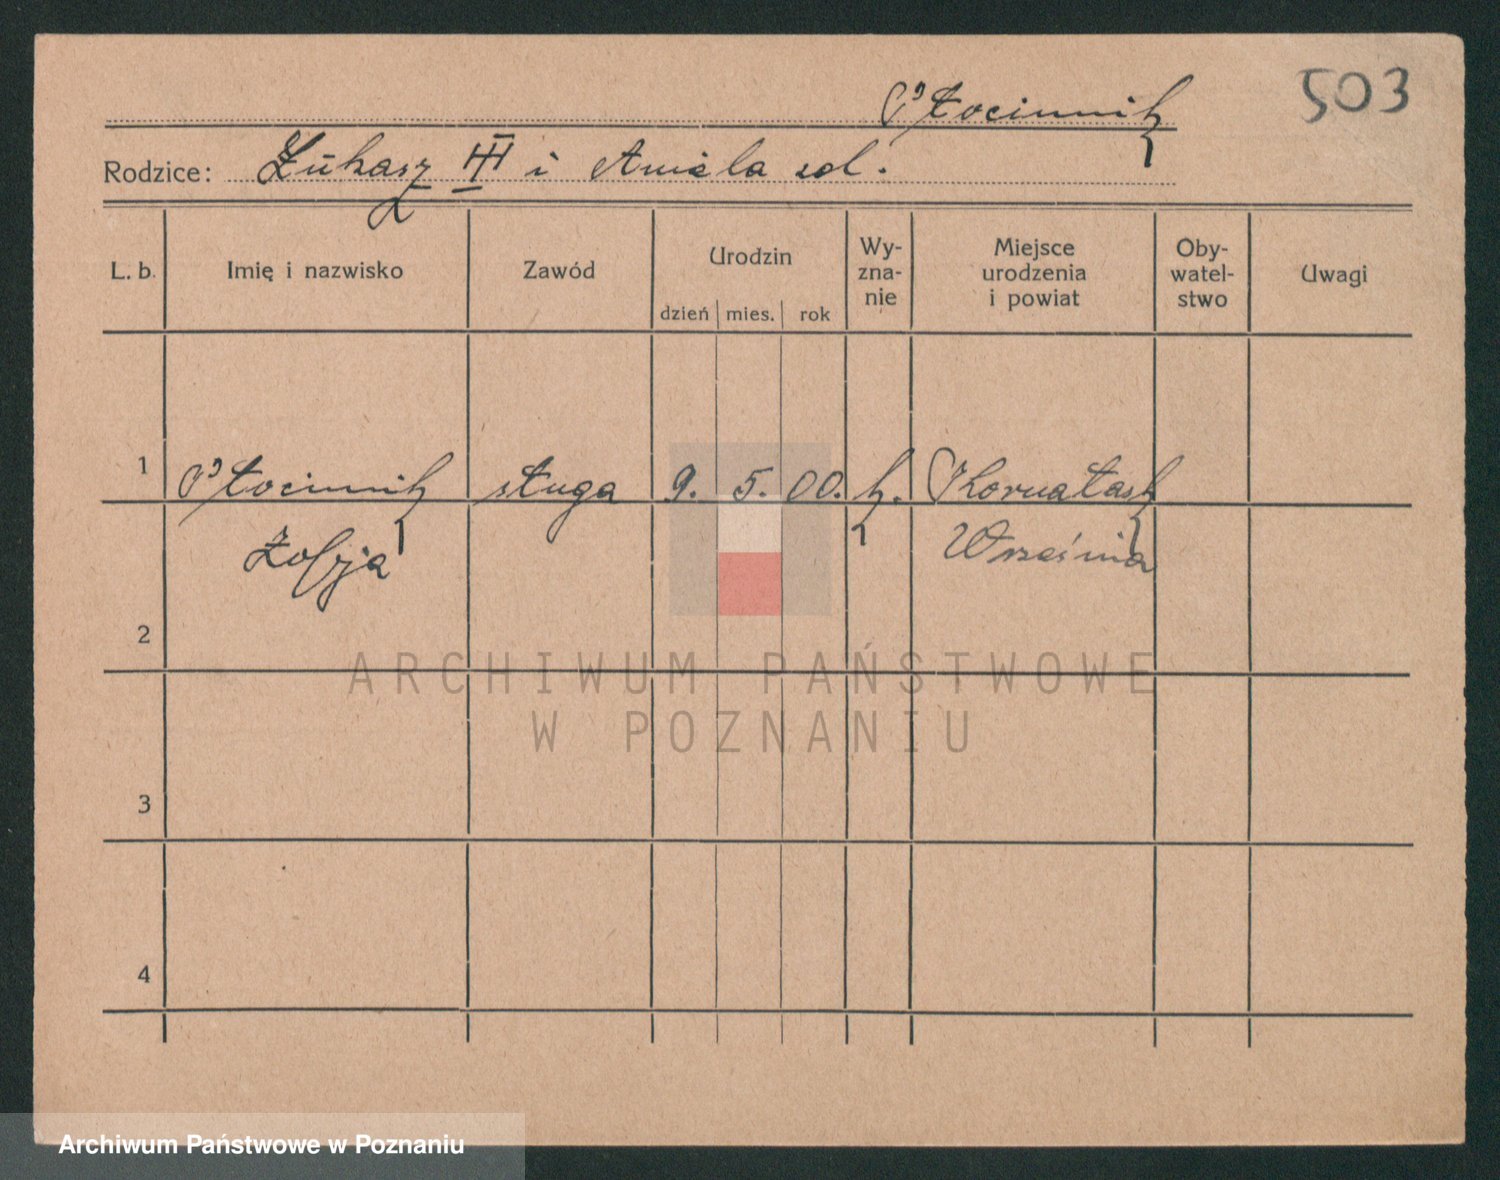 503
Płocinnik
Rodzice: Łukasz III i Aniela
L. b. Imię i nazwisko Zawód Urodzin Wy-zna-nie Miejsce urodzenia i powiat Oby-watel-stwo Uwagi
dzień mies. rok
1 Płocinnik sługa 9. 5. 00. k.
Zofja Września
2
3
4
ARCHIWUM PAŃSTWOWE
W POZNANIU
Archiwum Państwowe w Poznaniu